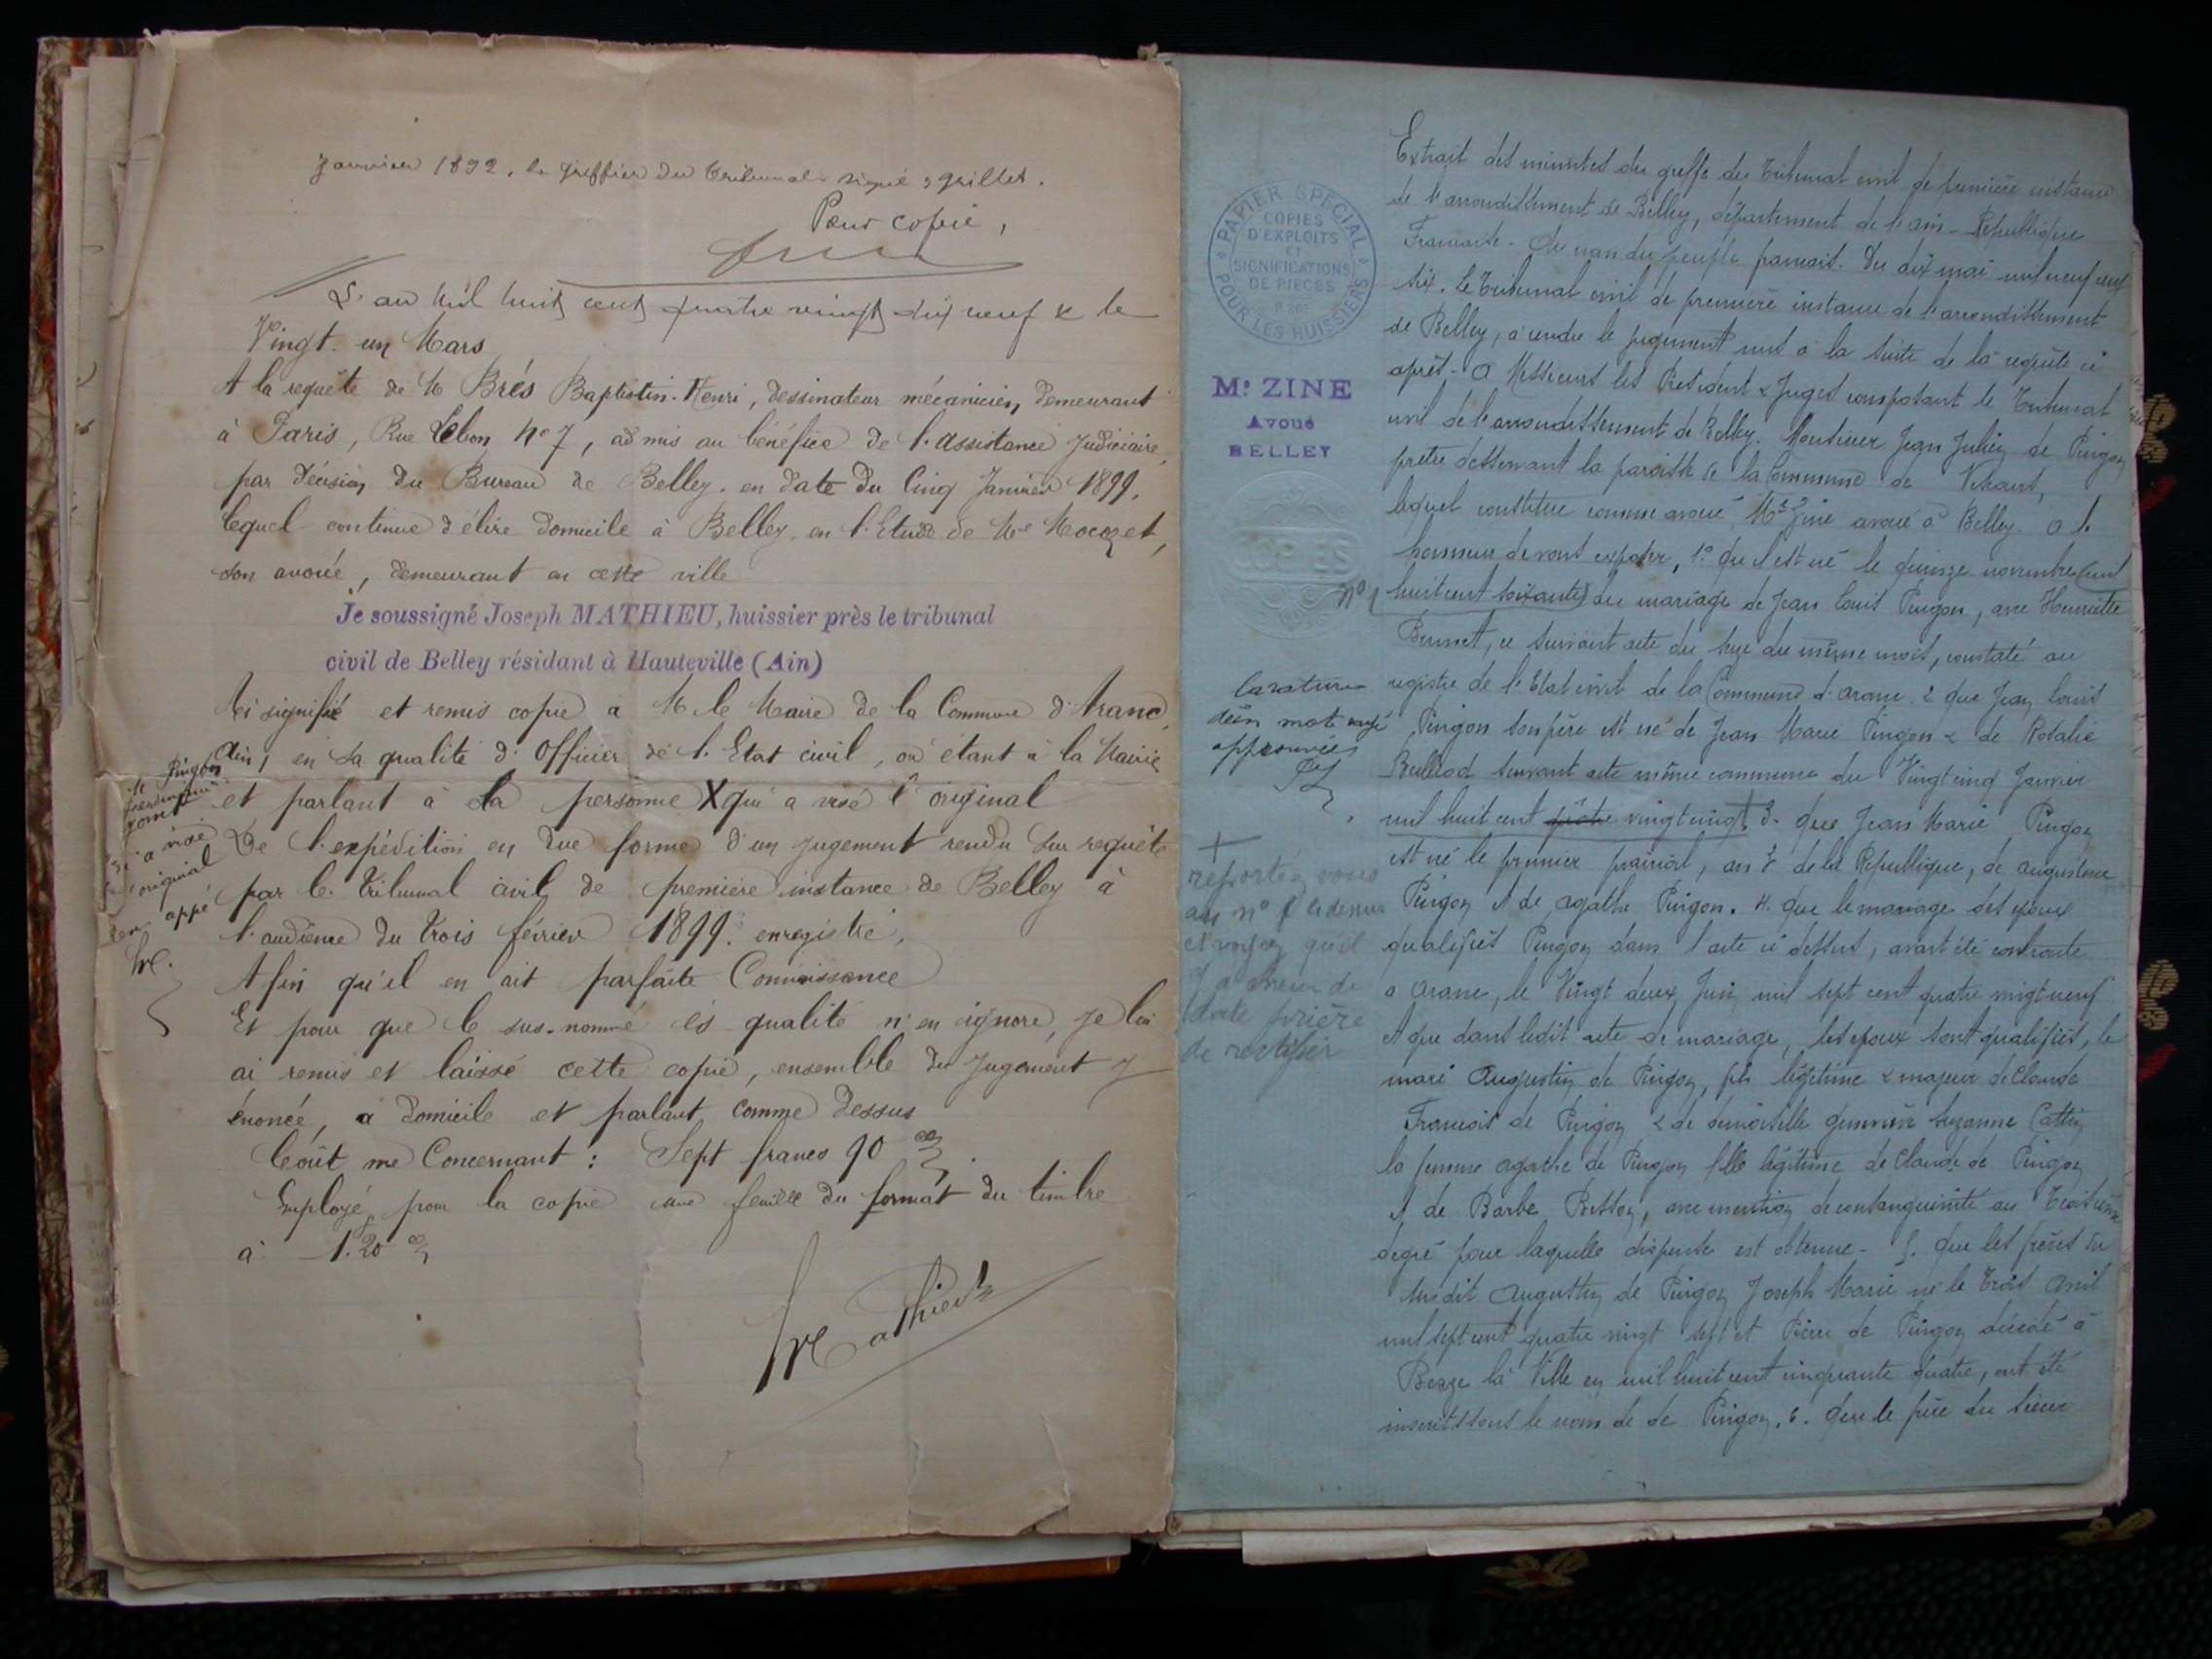 Janvier 1892. le Greffier du Tribunal signé, Grillet.
Pour copie,
L'an Mil huit cent quatre vingt dix neuf & le
Vingt-un Mars
A la requête de M Brés Baptistin-Henri, dessinateur mécanicien, demeurant
à Paris, Rue Lebon No 7, admis au bénéfice de l'Assistance Judiciaire,
par décision du Bureau de Belley, en date du Cinq Janvier 1899,
lequel continue d'élire domicile à Belley, en l'Etude de Me Mocozet,
son avoué, demeurant en cette ville
Je soussigné Joseph MATHIEU, huissier près le tribunal
civil de Belley résidant à Hauteville (Ain)
Ai signifié et remis copie à M le Maire de la Commune d'Aranc,
Ain, en sa qualité d'Officier de l'Etat civil, où étant à la Mairie
et parlant à sa personne X qui a visé l'original
De l'expédition en due forme d'un jugement rendu sur requête
par le Tribunal civil de première instance de Belley à
l'audience du Trois février 1899. enregistré,
Afin qu'il en ait parfaite Connaissance
Et pour que le sus-nommé ès qualité n'en ignore, je lui
ai remis et laissé cette copie, ensemble du Jugement y
énoncé, à domicile et parlant comme dessus
Coût me Concernant : Sept francs 90
Employé pour la copie une feuille du format du timbre
à 1.20
Mathieu
M Pingon
a visé
original
appé
PAPIER SPECIAL
COPIES
D'EXPLOITS
ET
SIGNIFICATIONS
DE PIECES
POUR LES HUISSIERS
Me ZINE
Avoué
BELLEY
COPIES
Extrait des minutes du greffe du Tribunal civil de première instance
de l'arrondissement de Belley, département de l'ain - République
Francaise - Au nom du peuple francais. Du dix mai mil neuf cent
six. Le Tribunal civil de première instance de l'arrondissement
de Belley, a rendu le jugement mis à la suite de la requête ci
après - A Messieurs les President & Juges composant le Tribunal
civil de l'arrondissement de Belley. Monsieur Jean Julien de Pingon
prêtre desservant la paroisse de la Commune de
lequel constitue comme avoué Me Zine avoué à Belley. a l'
honneur de vous exposer, 1o qu'il est né le quinze novembre (mil
No 1 huit cent soixante) du mariage de Jean Louis Pingon, avec Henriette
Brunet, ce suivant acte du seize du même mois, constaté au
registre de l'Etat civil de la Commune d'aranc. 2 que Jean Louis
Pingon son père est né de Jean Marie Pingon & de Rosalie
suivant acte même commune du Vingt cinq Janvier
mil huit cent quatre vingt cinq + 3. que Jean Marie Pingon
est né le premier prairial, an 8 de la République, de augustin
Pingon & de agathe Pingon. 4. que le mariage des époux
qualifiés Pingon dans l'acte ci dessus, avait été contracté
a Aranc, le Vingt deux Juin mil sept cent quatre vingt neuf
& que dans ledit acte de mariage, les époux sont qualifiés, le
mari Augustin de Pingon, fils légitime & majeur de Claude
Francois de Pingon & de demoiselle Suzanne Cattin
la femme agathe de Pingon fille légitime de Claude de Pingon
& de Barbe Betton, avec mention de consanguinité au Troisième
degré pour laquelle dispense est obtenue - 5. que les frères du
susdit Augustin de Pingon Joseph Marie né le Trois Avril
mil sept cent quatre vingt sept et Pierre de Pingon décédé à
la Ville en mil huit cent cinquante quatre, ont été
inscrits sous le nom de de Pingon. 6. que le père du sieur
la rature
d'un mot rayé
approuvée
+
reportez vous
au no 1 ci dessus
et voyez qu'il
y a erreur de
date prière
de rectifier